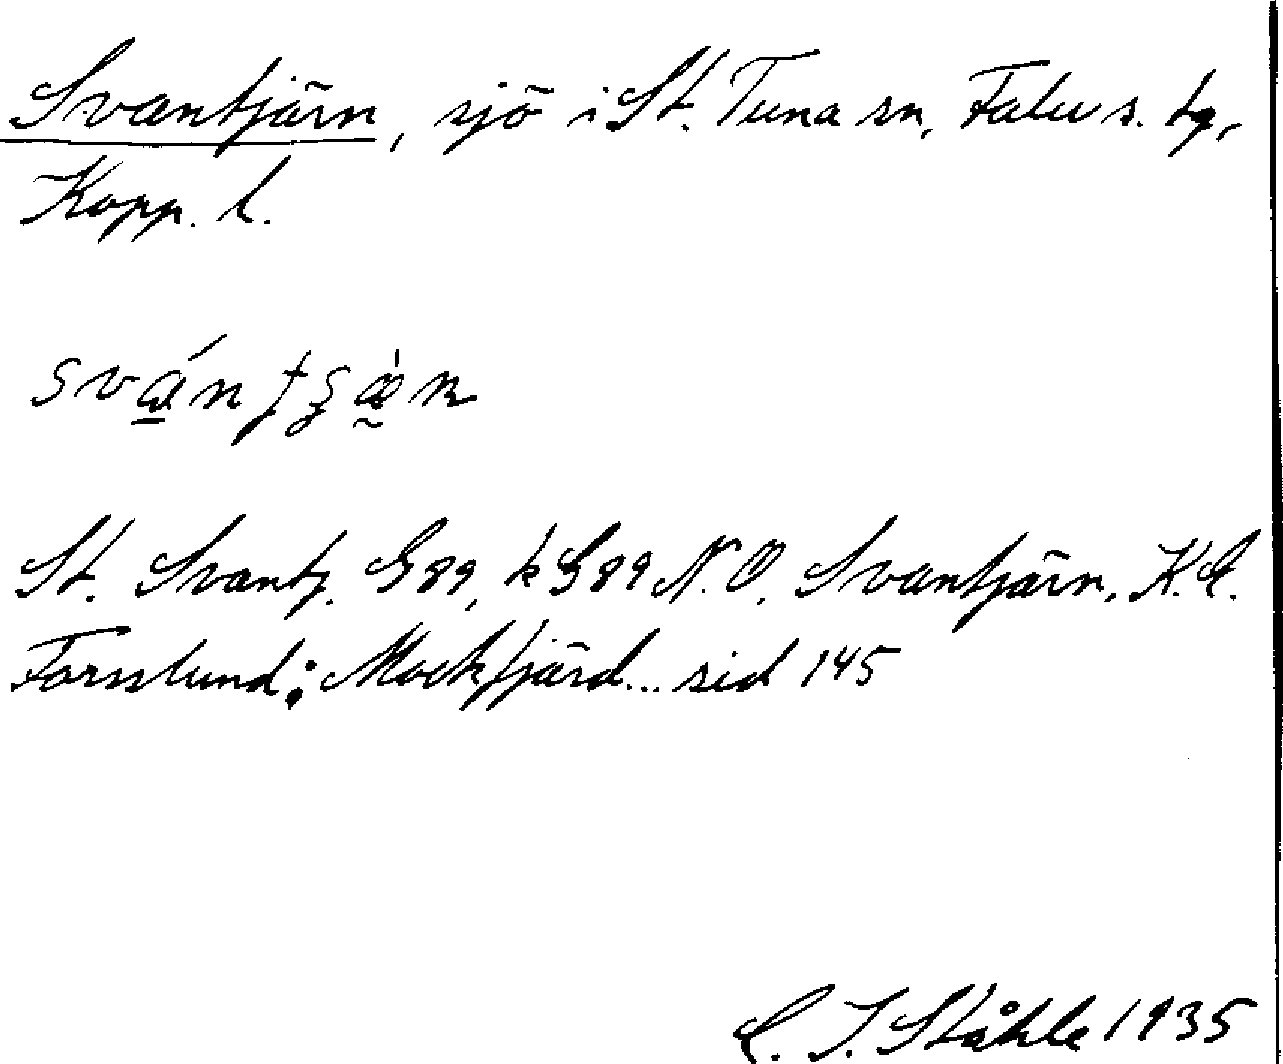 Svantjärn, sjö i St. Tuna sn, Falu s. tg,
Kopp. l.
St. Svantj. G89, k G89 N.O. Svantjärn, K.E.
Forslund: Mockfjärd... sid 145
C. I. Ståhle 1935